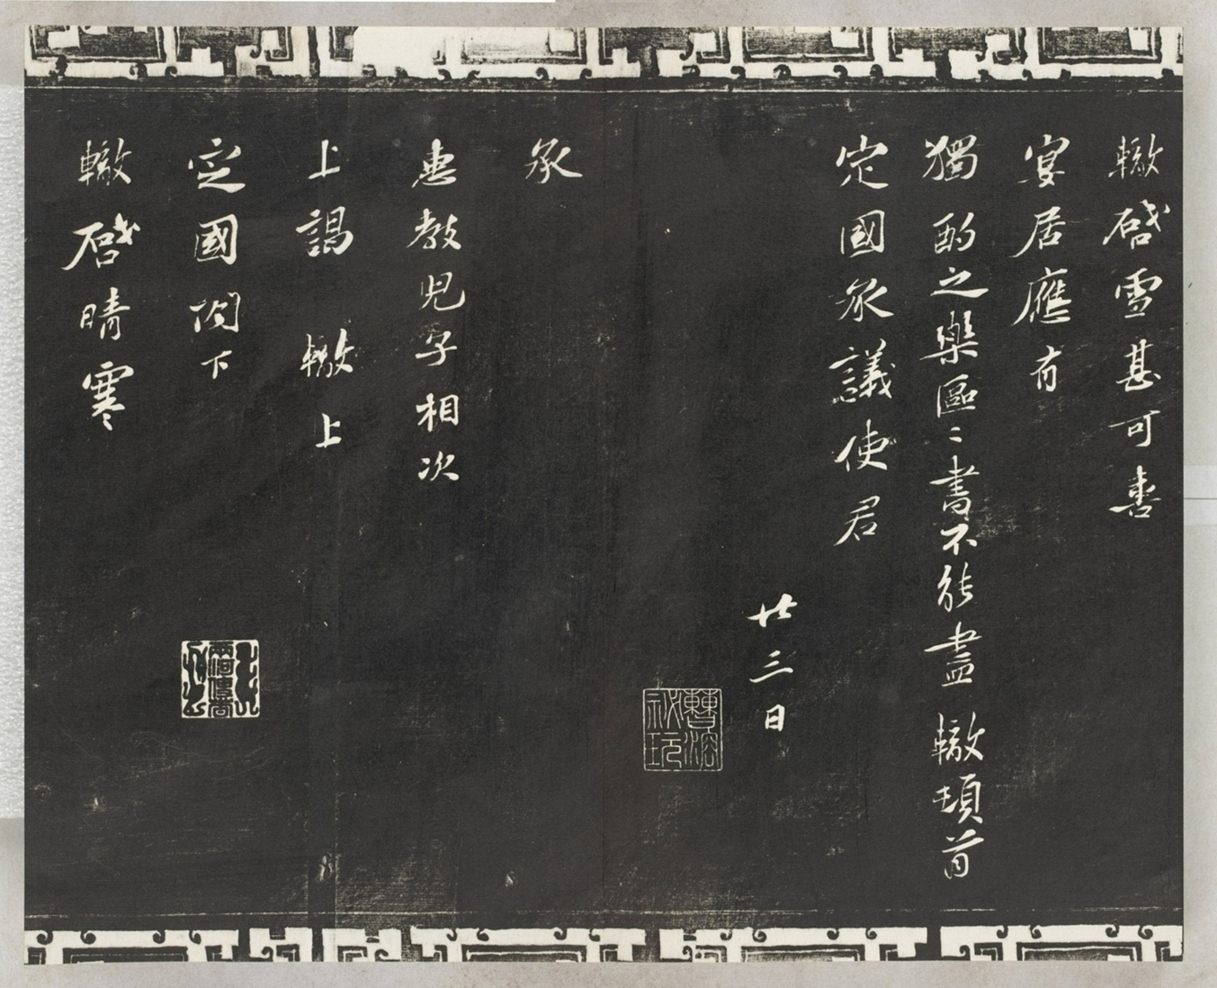 轍啓雪甚可喜
宴居應有
獨酌之樂區〻書不能盡 轍頓首
定國承議使君
廿三日
承
惠教兒子相次
上謁 轍上
定國閤下
轍啓晴寒